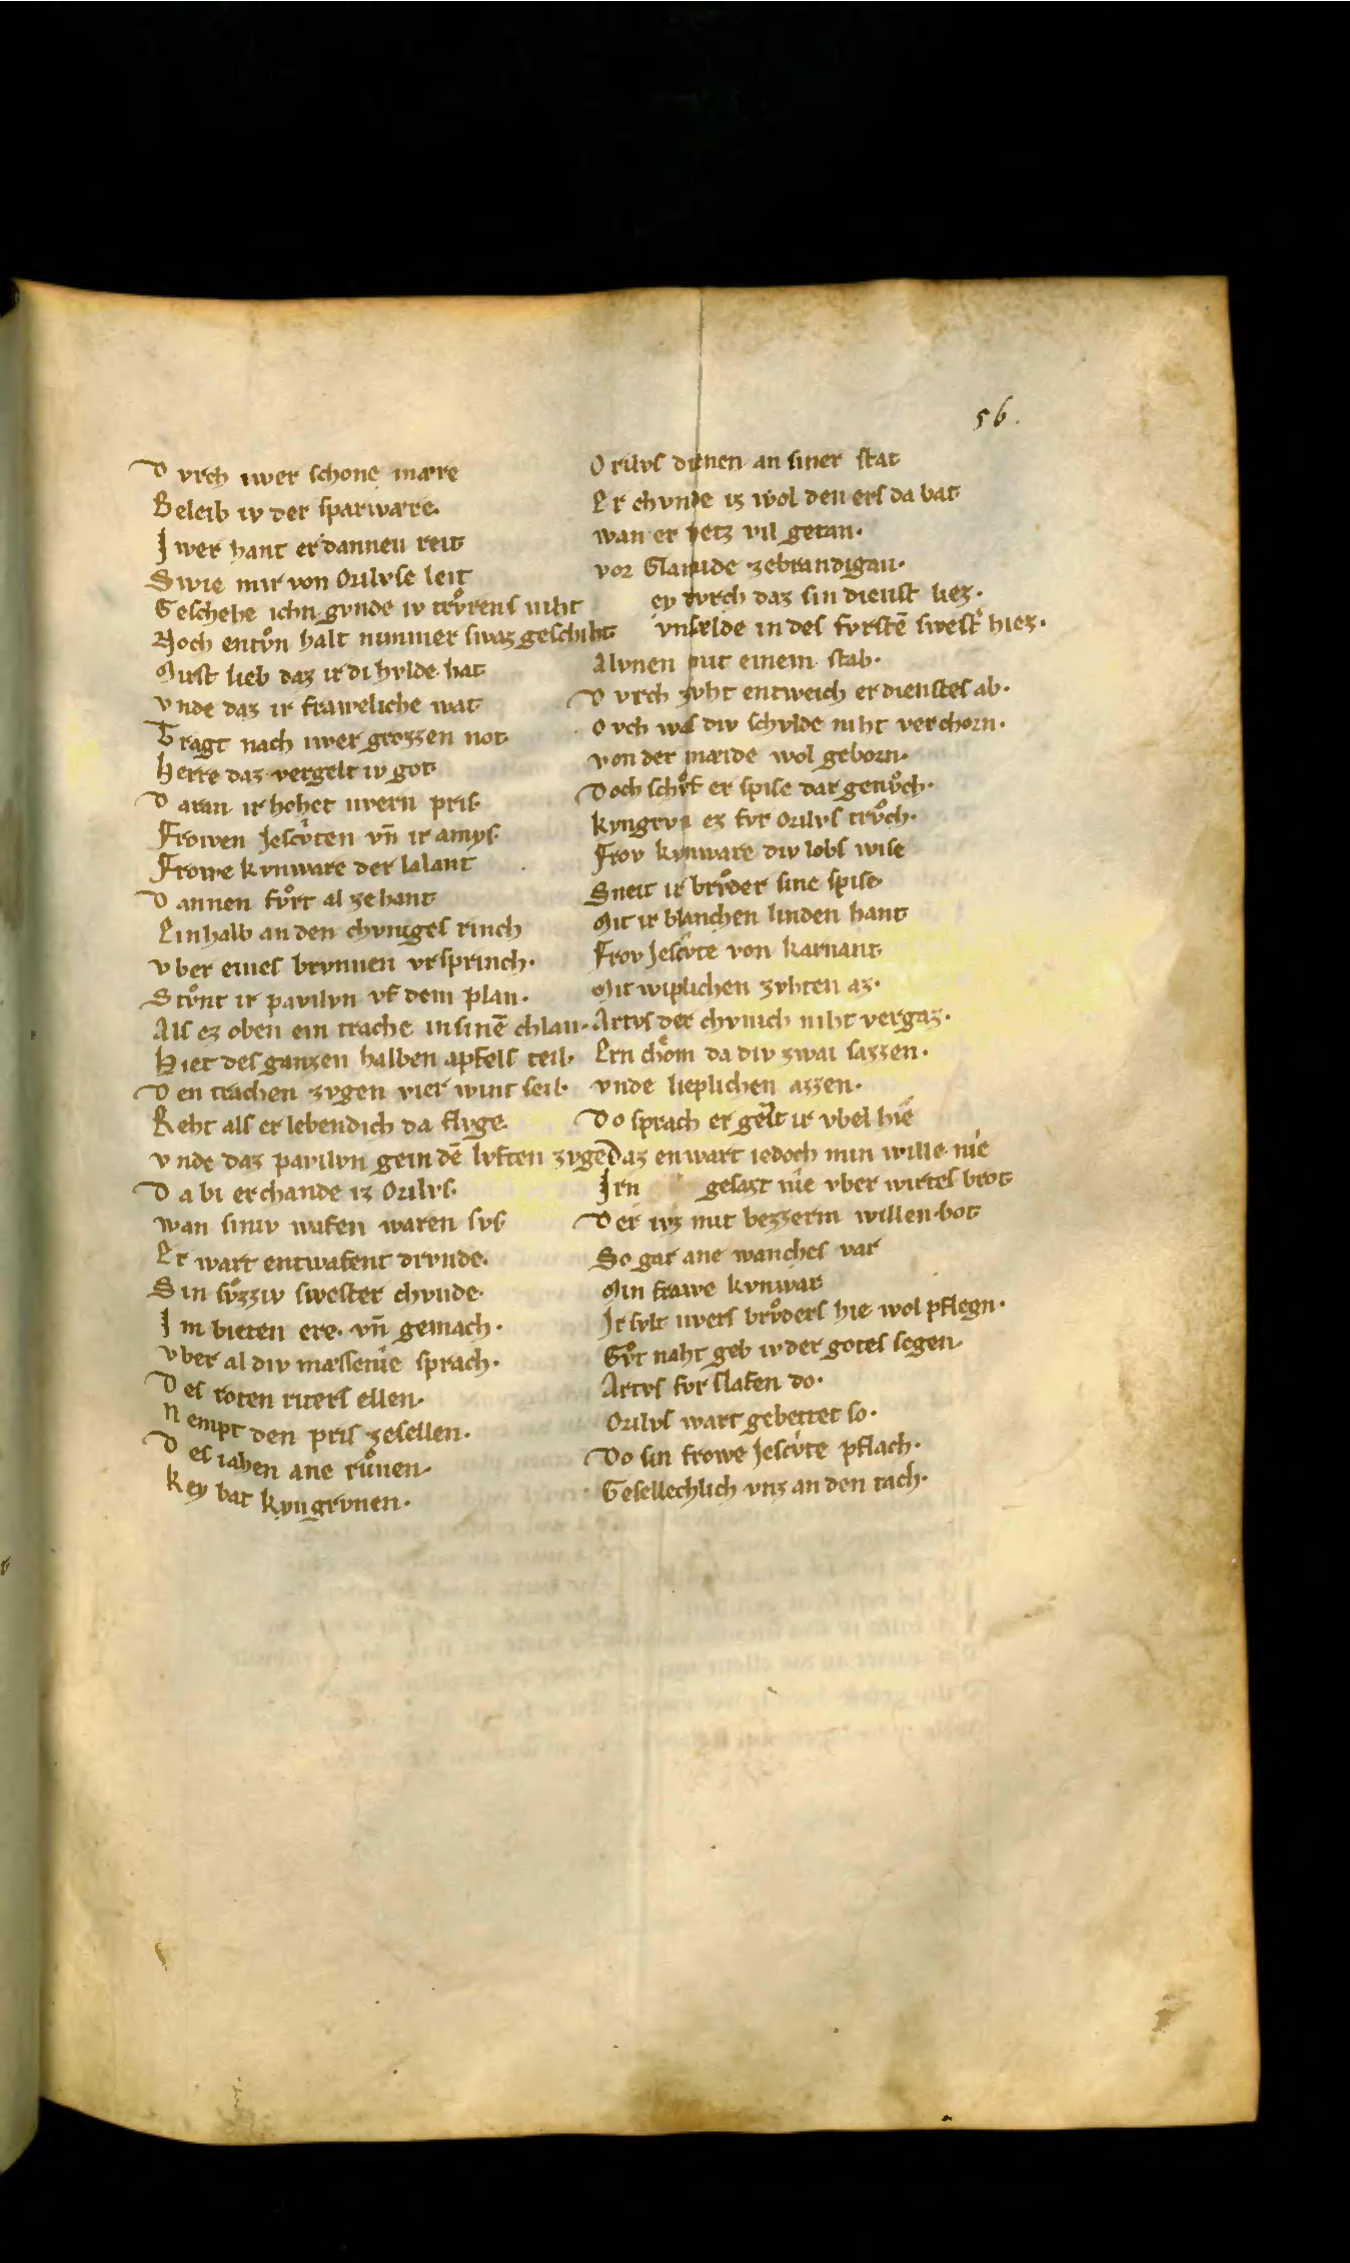 56.
D vrch iwer schone mære
B eleib iv der sparwære.
I wer hant er dannen reit
S wie mir von Orilvse leit
G eschehe ichn gvnde iv trv̊rens niht
N och entv̊n halt nimmer swaz geschiht
M irst lieb daz ir di hvlde hat
v nde daz ir fraweliche wat
T ragt nach iwer grozzen not
H erre daz vergelt iv got
D aran ir hohet iwern pris
F rowen Jescvten vn̄ ir amys.
F rowe kvnware der lalant
D annen fv̊rt al zehant
E inhalb an den chvniges rinch
v ber eines brvnnen vrsprinch.
S tv̊nt ir pavilvn vf dem plan.
A ls ez oben ein trache in sinē chlan.
H iet des ganzen halben apfels teil.
D en trachen zvgen vier wint seil.
R eht als er lebendich da flvge.
v nde daz pavilvn gein dē lvften zvge
D a bi erchande iz Orilvs.
wan siniv wafen waren svs
E r wart entwafent drvnde.
S in sv̊zziv swester chvnde.
I m bieten ere. vn̄ gemach.
v ber al div mæssenie sprach.
D es roten riters ellen.
N empt den pris zesellen.
D es iahen ane rv̊nen.
K ey bat kyngrvnen.
O rilvs dienen an siner stat
E r chvnde iz wol den ers da bat
wan er hetz vil getan.
vor Clamide zebrandigan.
ey dvrch daz sin dienst liez.
vnsælde in des fvrstē swest' hiez.
A lvnen mit einem stab.
D vrch zvht entweich er dienstes ab.
O vch was div schvlde niht verchorn.
von der mæide wol geborn.
D och schv̊f er spise dar genv̊ch.
kyngrvn ez fvr Orilvs trv̊ch.
F rov kvnware div lobs wise
S neit ir brv̊der sine spise
M it ir blanchen linden hant
F rov Jescvte von karnant
M it wiplichen zvhten az.
A rtvs der chvnich niht vergaz.
E rn chœm da div zwai sazzen.
vnde lieplichen azzen.
D o sprach er gezt ir vbel hie
D az enwart iedoch min wille nie
I rn gesazt nie vber wirtes brot
D er ivz mit bezzerm willen bot
S o gar ane wanches var
M in frawe kvnwar
I r svlt iwers brv̊ders hie wol pflegn.
G v̊t naht geb iv der gotes segen.
A rtvs fvr slafen do.
O rilvs wart gebettet so.
D o sin frowe Jescvte pflach.
G esellechlich vnz an den tach.